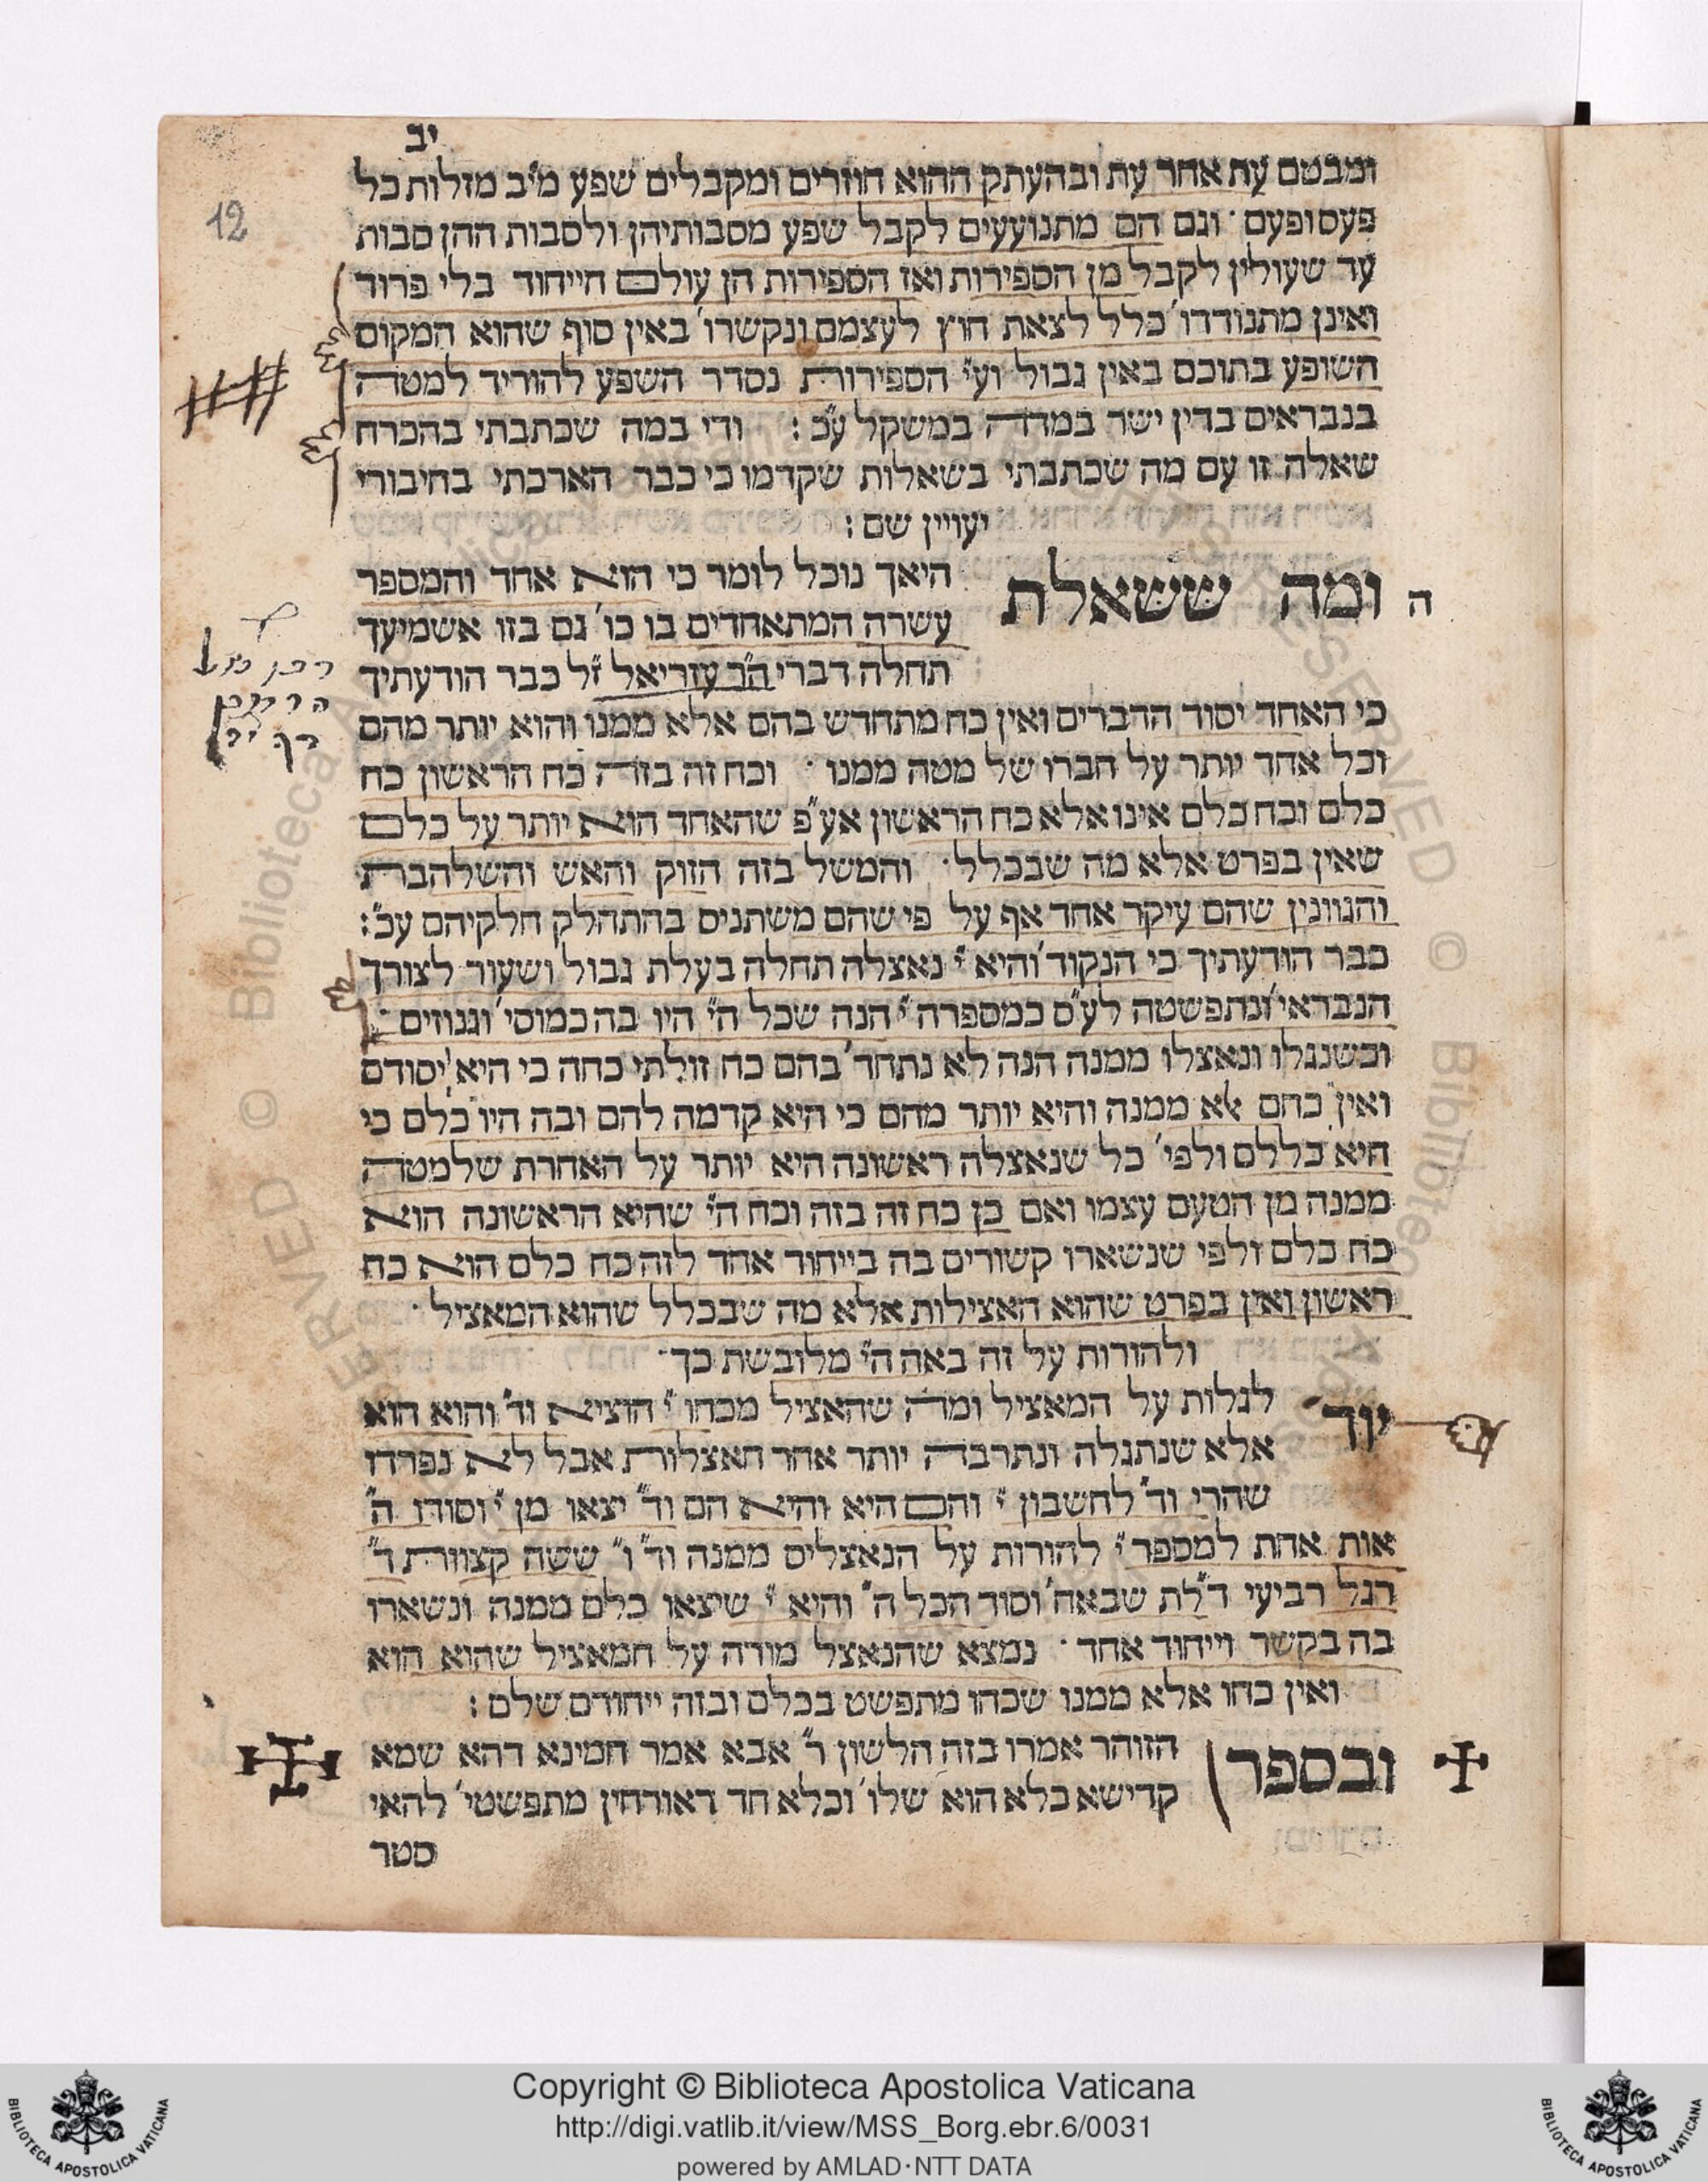 יב
12
ומבטם עת אחר עת ובהעתק ההוא חוזרים ומקבלים שפע מי"ב מזלות כל
פעם ופעם · וגם הם מתנועעים לקבל שפע מסבותיהן ולסבות ההן סבות
עד שעולין לקבל מן הספירות ואז הספירות הן עולם הייחוד בלי פרוד
ואינן מתנודדו' כלל לצאת חוץ לעצמם ונקשרו' באין סוף שהוא המקום
השופע בתוכם באין גבול וע"י הספירות נסדר השפע להוריד למטה
בנבראים בדין ישר במדה במשקל ע"כ : ודי במה שכתבתי בהכרח
שאלה זו עם מה שכתבתי בשאלות שקדמו כי כבר הארכתי בחיבורי
יעויין שם :
ה ומה ששאלת היאך נוכל לומר כי הוא אחד והמספר
עשרה המתאחדים בו כו' גם בזו אשמיעך
תחלה דברי הר' עזריאל ז"ל כבר הודעתיך
כי האחד יסוד הדברים ואין כח מתחדש בהם אלא ממנו והוא יותר מהם
וכל אחד יותר על חברו של מטה ממנו · וכח זה בזה כח הראשון כח
כלם וכח כלם אינו אלא כח הראשון אע"פ שהאחד הוא יותר על כלם
שאין בפרט אלא מה שבכלל · והמשל בזה הזוק והאש והשלהבת
והגוונין שהם עיקר אחד אף על פי שהם משתנים בהתהלק חלקיהם עכ" :
כבר הודעתיך כי הנקוד' והיא י' נאצלה תחלה בעלת גבול ושעור לצורך
הנבראי' ונתפשטה לע"ס כמספרה י' הנה שכל הי' היו בה כמוסי' וגנוזים
וכשנגלו ונאצלו ממנה הנה לא נתחד' בהם כח זולתי כחה כי היא יסודם
ואין כחם אלא ממנה והיא יותר מהם כי היא קדמה להם ובה היו כלם כי
היא כללם ולפי' כל שנאצלה ראשונה היא יותר על האחרת שלמטה
ממנה מן הטעם עצמו ואם כן כח זה בזה וכח הי' שהיא הראשונה הוא
כח כלם ולפי שנשארו קשורים בה בייחוד אחד לזה כח כלם הוא כח
ראשון ואין בפרט שהוא האצילות אלא מה שבכלל שהוא המאציל ·
ולהורות על זה באה הי' מלובשת כך ·
יוד לגלות על המאציל ומה שהאציל מכחו י' הוציא וד' והוא הוא
אלא שנתגלה ונתרבה יותר אחר האצלות אבל לא נפרדו
שהרי וד' לחשבון י' והם היא והיא הם וד' יצאו מן י' וסודו ה'
אות אחת למספר י' להורות על הנאצלים ממנה וד' ו' ששה קצוות ד'
רגל רביעי ד'לת שבאה' וסוד הכל ה' והיא י' שיצאו כלם ממנה ונשארו
בה בקשר וייחוד אחד · נמצא שהנאצל מורה על המאציל שהוא הוא
ואין כחו אלא ממנו שכחו מתפשט בכלם ובזה ייחודם שלם :
ובספר הזוהר אמרו בזה הלשון ר' אבא אמר חמינא דהא שמא
קדישא כלא הוא שלו' וכלא חד דאורחין מתפשטי' להאי
סטר
© Biblioteca Apostolica
Copyright © Biblioteca Apostolica Vaticana
http://digi.vatlib.it/view/MSS_Borg.ebr.6/0031
powered by AMLAD·NTT DATA
BIBLIOTECA APOSTOLICA VATICANA
BIBLIOTECA APOSTOLICA VATICANA